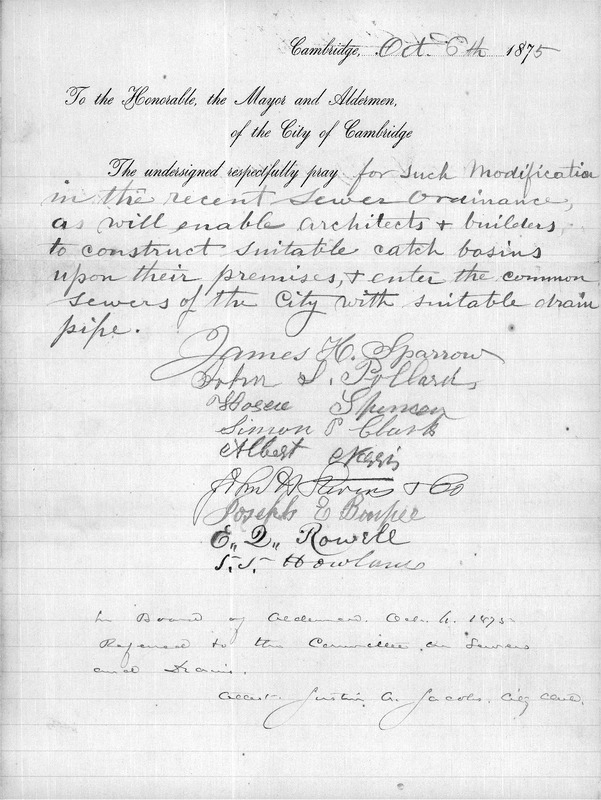 Cambridge, Oct. 6th 1875
To the Honorable, the Mayor and Aldermen,
of the City of Cambridge
The undersigned respectfully pray for such Modification
in the recent Sewer Ordinance,
as will enable architects & builders
to construct suitable catch basins
upon their premises, & enter the common
sewers of the City with suitable drain
pipe.
James H. Sparrow
John S. Pollard
Spenser
Simon P Clark
Albert Norris
John H Stevens & Co
Joseph E
E. D. Rowell
S. S. Howland
In Board of Aldermen. Oct. 6. 1875
Referred to the Committee on Sewers
and Drains.
Attest. Justin A. Jacobs, City Clerk.